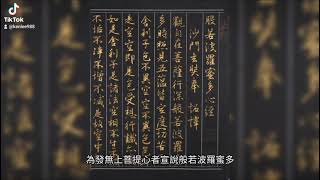 TikTok
@kenlee988
般若波羅蜜多心經
沙門玄奘奉 詔譯
觀自在菩薩行深般若波羅
多時照見五蘊皆空度一切苦
舍利子色不異空空不異色色
是空空即是色受想行識
如是舍利子是諸法空相不生
不垢不淨不增不減是故空中
為發無上菩提心者宣說般若波羅蜜多